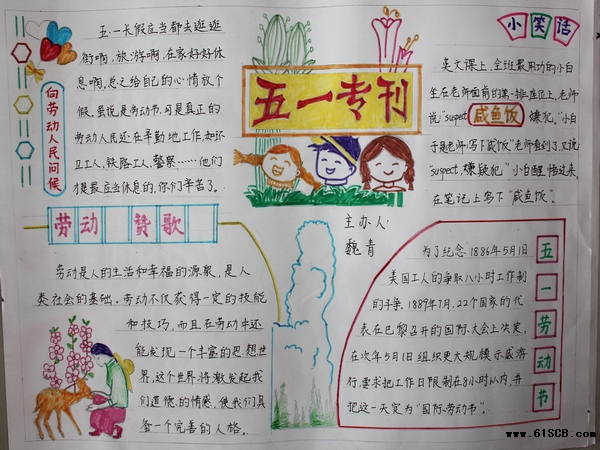 五一专刊
主办人:
魏青
向劳动人民问候
五·一长假应当都去逛逛
街啊,旅游啊,在家好好休
息啊,总之给自己的心情放个
假,虽说是劳动节,可是真正的
劳动人民还在辛勤地工作,如环
卫工人,铁路工人,警察……他们
才是最应当休息的,你们辛苦了。
小笑话
英文课上,全班最用功的小白
坐在老师面前的第一排座位上,老师
说"suspect 咸鱼饭 嫌犯。"小白
于是
老师写下"咸鱼饭"老师看到了,又说
"suspect,嫌疑犯。"小白醒悟过来,
在笔记上写下"咸鱼饭"。
劳动赞歌
劳动是人的生活和幸福的源泉,是人
类社会的基础,劳动不仅获得一定的技能
和技巧,而且在劳动中还
能发现一个丰富的思想世
界,这个世界将激发起我
们道德的情感,使我们具
备一个完善的人格。
五一劳动节
为了纪念1886年5月1日
美国工人的争取八小时工作制
的斗争,1889年7月,22个国家的代
表在巴黎召开的国际大会上决定,
在次年5月1日组织更大规模示威游
行,要求把工作日限制在8小时以内,并
把这一天定为"国际劳动节"。
www.61SCB.com